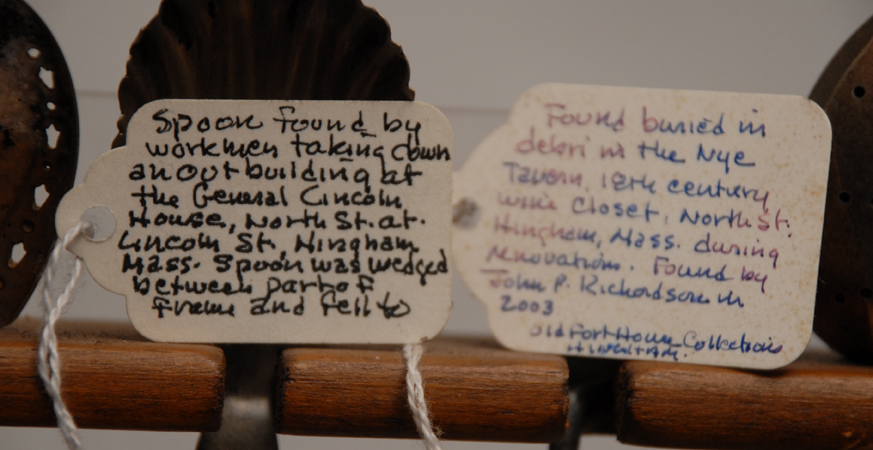 Spoon found by
workmen taking down
an outbuilding at
the General Lincoln
House, North St. at.
Lincoln St. Hingham
Mass. Spoon was wedged
between part of
frame and fell to
Found buried in
debri in the Nye
Tavern, 18th century
wine closet, North St.
Hingham, Mass. during
renovations. Found by
John P. Richardson in
2003
Old Fort House Collections
Hingham.